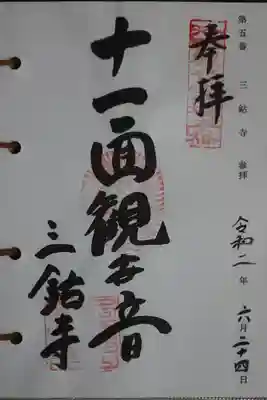 第五番 三鈷寺 参拝
令和二年六月二十四日
奉拝
十一面観世音
三鈷寺